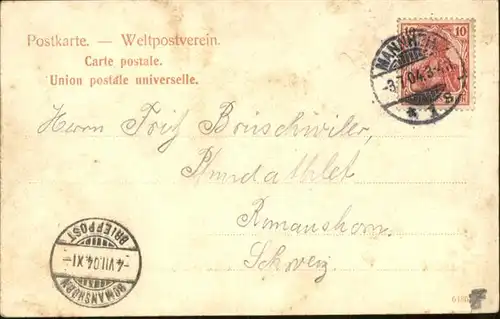 Postkarte. — Weltpostverein.
Carte postale.
Union postale universelle.
10 10
MANNHEIM
3.7.04.3-4N
* 1 s
Herrn Fritz Brüschwiler,
Romanshorn.
Schweiz
BRIEFPOST
-4.VII.04.XI-
ROMANSHORN